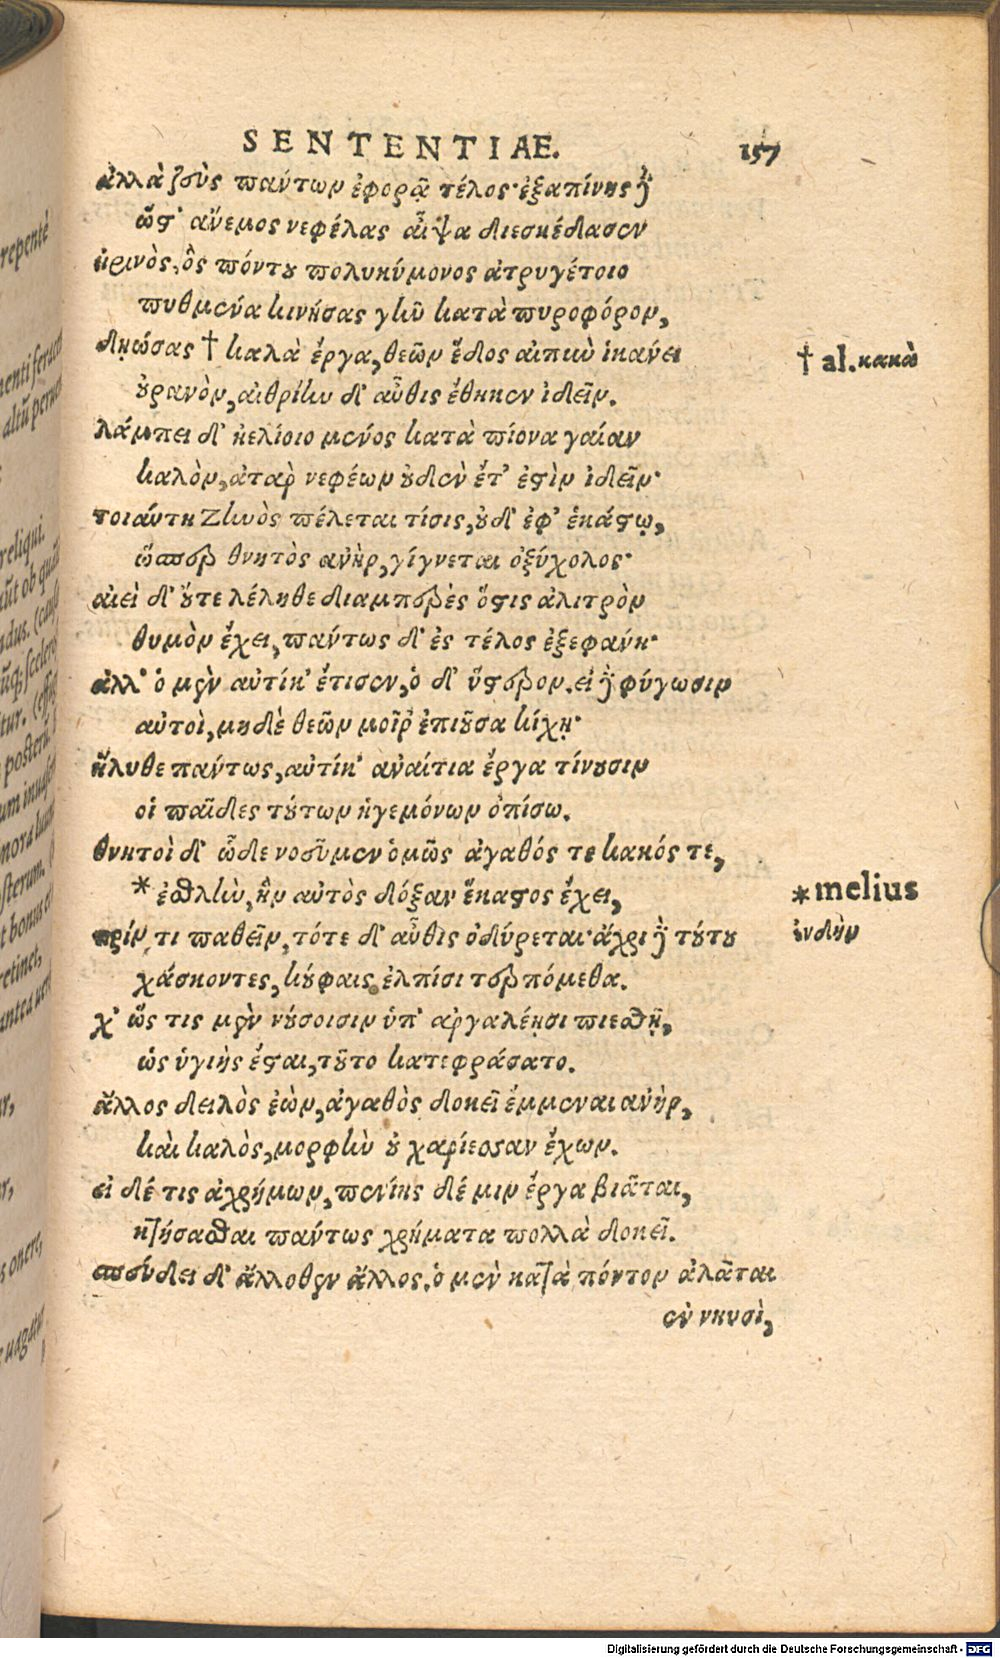 SENTENTIAE. 157
ἀλλὰ ζεὺς πάντων ἐφορᾷ τέλος· ἐξαπίνης δὲ
ὥστ' ἄνεμος νεφέλας αἶψα διεσκέδασεν
ἠρινὸς, ὃς πόντου πολυκύμονος ἀτρυγέτοιο
πυθμένα κινήσας γῆν κατὰ πυροφόρον,
δῃώσας † καλὰ ἔργα, θεῶν ἕδος αἰπὺ ἱκάνει
οὐρανὸν, αἰθρίην δ' αὖθις ἔθηκεν ἰδεῖν.
λάμπει δ' ἠελίοιο μένος κατὰ πίονα γαίαν
καλὸν, ἀτὰρ νεφέων οὐδὲν ἔτ' ἐστὶν ἰδεῖν·
τοιαύτη Ζηνὸς πέλεται τίσις, οὐδ' ἐφ' ἑκάστῳ,
ὥσπερ θνητὸς ἀνὴρ, γίγνεται ὀξύχολος·
αἰεὶ δ' οὔτε λέληθε διαμπερὲς ὅστις ἀλιτρὸν
θυμὸν ἔχει, πάντως δ' ἐς τέλος ἐξεφάνη·
ἀλλ' ὁ μὲν αὐτίκ' ἔτισεν, ὁ δ' ὕστερον. εἰ δὲ φύγωσιν
αὐτοὶ, μηδὲ θεῶν μοῖρ' ἐπιοῦσα κίχῃ·
ἤλυθε πάντως, αὐτίκ' ἀναίτια ἔργα τίνουσιν
οἱ παῖδες τούτων ἡγεμόνων ὀπίσω.
θνητοὶ δ' ὧδε νοοῦμεν ὁμῶς ἀγαθός τε κακός τε,
* ἐσθλὴν, ἣν αὐτὸς δόξαν ἕκαστος ἔχει,
πρίν τι παθεῖν, τότε δ' αὖθις ὀδύρεται· ἄχρι δὲ τούτου
χάσκοντες, κούφαις ἐλπίσι τερπόμεθα.
χ' ὥς τις μὲν νούσοισιν ὑπ' ἀργαλέῃσι πιεσθῇ,
ὡς ὑγιὴς ἔσται, τοῦτο κατεφράσατο.
ἄλλος δειλὸς ἐὼν, ἀγαθὸς δοκεῖ ἔμμεναι ἀνὴρ,
καὶ καλὸς, μορφὴν οὐ χαρίεσσαν ἔχων.
εἰ δέ τις ἀχρήμων, πενίης δέ μιν ἔργα βιᾶται,
κτήσασθαι πάντως χρήματα πολλὰ δοκεῖ.
σπεύδει δ' ἄλλοθεν ἄλλος. ὁ μὲν κατὰ πόντον ἀλᾶται
ἐν νηυσὶ,
† al. κακὰ
* melius
ἐνδὴν
repenté
reliqui.
posteru.
Digitalisierung gefördert durch die Deutsche Forschungsgemeinschaft - DFG